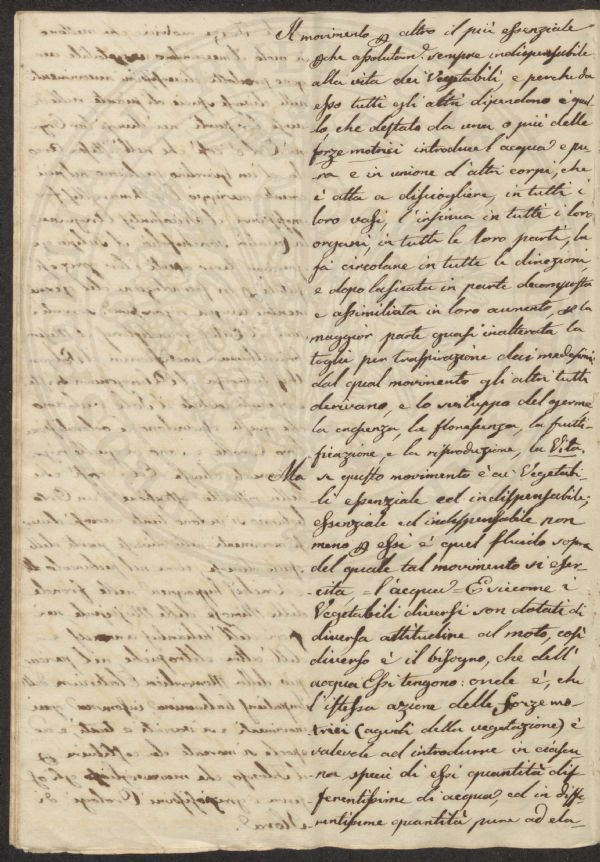 Il movimento però altro il più essenziale
che assolutam.e sempre indispensabile
alla vita dei Vegetabili e perche da
esso tutti gli altri dipendono è quel
lo, che destato da una o più delle
forze motrici introduce l'acqua e pu-
ra e in unione d'altri corpi, che
è atta a disciogliere, in tutti i
loro vasi, l'insinua in tutti i loro
organi, in tutte le loro parti, la
fà circolare in tutte le direzioni,
e dopo lasciata in parte decomposta
e assimilata in loro aumento, la
maggior parte quasi inalterata la
toglie per traspirazione dai medesimi
dal qual movimento gli altri tutti
derivano, e lo sviluppo del germe
la crescenza, la florescenza, la frutti-
ficazione, e la riproduzione, la Vita.
Ma se questo movimento è ai Vegetabi-
li essenziale ed indispensabile;
essenziale ed indispensabile non
meno essi è quel fluido sopra
del quale tal movimento si eser-
cita = l'acqua = E siccome i
Vegetabili diversi son dotati di
diversa attitudine al moto, così
diverso è il bisogno, che dell'
acqua Essi tengono: onde è, che
l'istessa azione delle forze mo-
trici (agenti della vegetazione) è
valevole ad introdurre in ciascu-
na specie di essi quantità dif-
ferentissime di acqua, ed in diffe-
rentissime quantità pure ad ela-